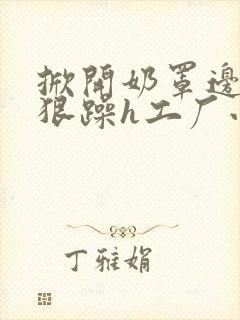 掀開奶罩邊
狠躁h工厂
丁雅娟